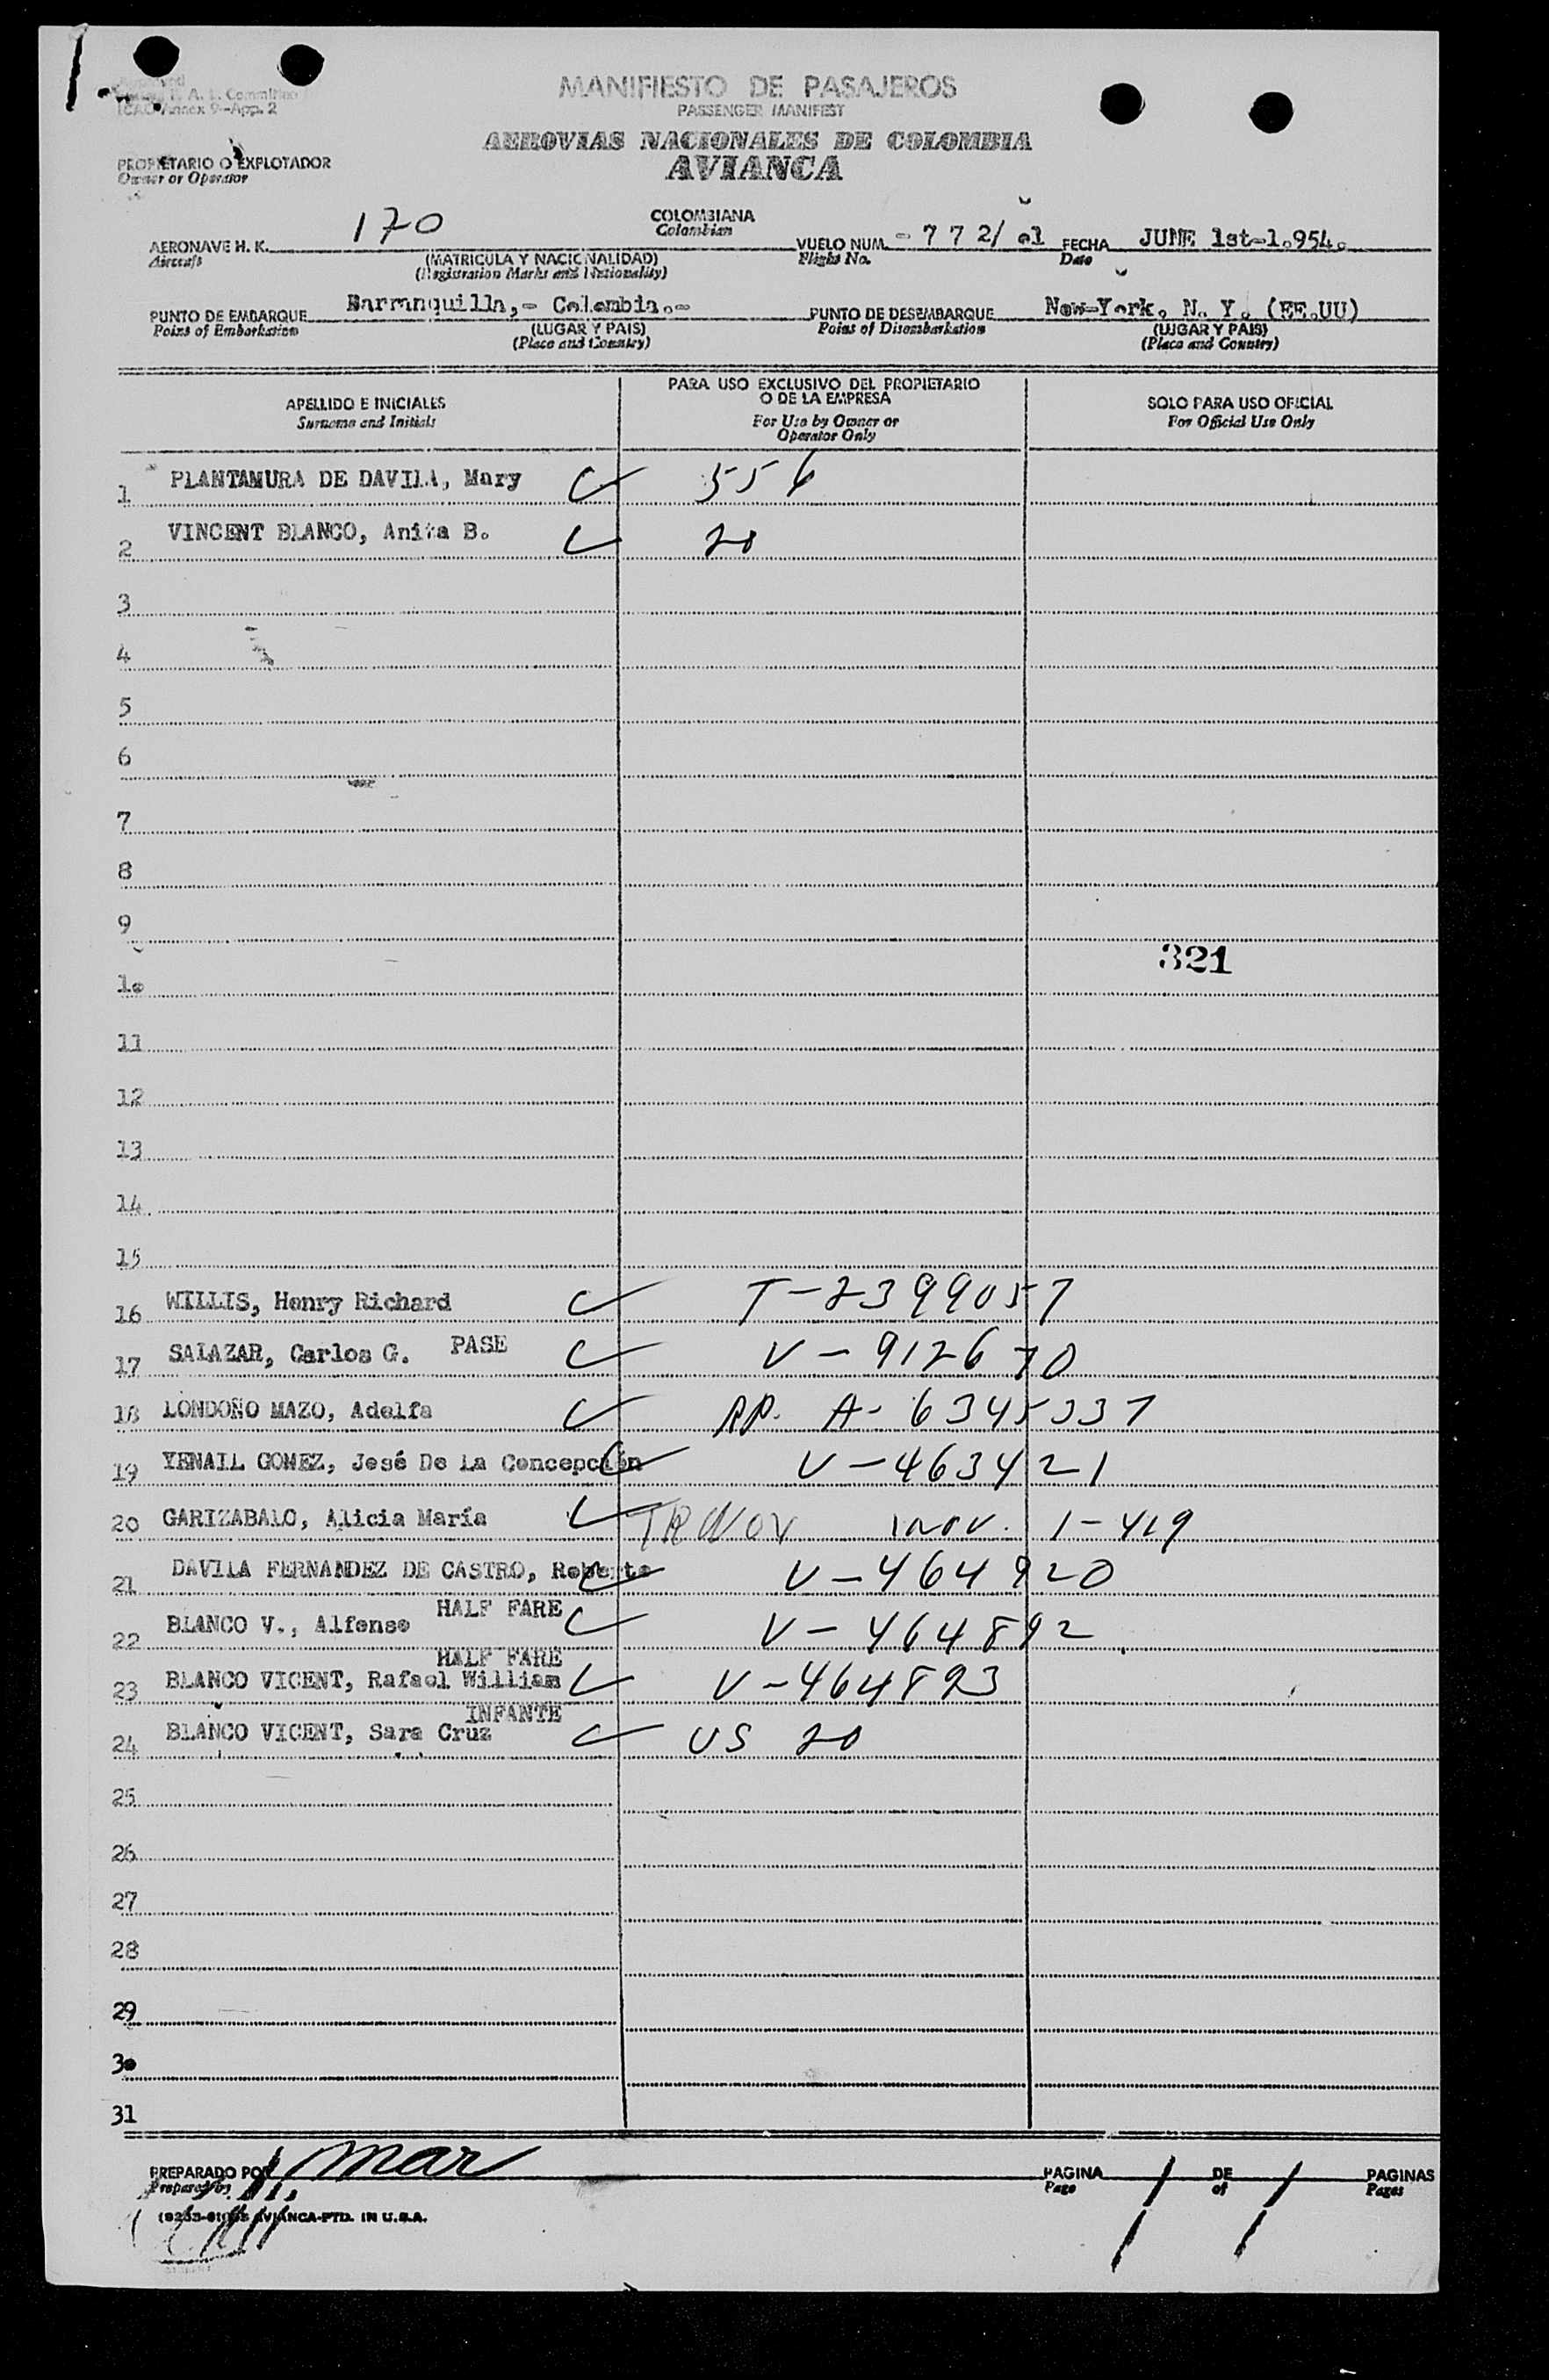 I. A. T. Committee
ICAO Annex 9-App. 2
MANIFIESTO DE PASAJEROS
PASSENGER MANIFEST
AEROVIAS NACIONALES DE COLOMBIA
AVIANCA
PROPIETARIO O EXPLOTADOR
Owner or Operator
AERONAVE H. K. 170 COLOMBIANA VUELO NUM. - 7 7 2/ o1 FECHA JUNE 1st-1.954.
Aircraft Colombian Flight No. Date
(MATRICULA Y NACIONALIDAD)
(Registration Marks and Nationality)
PUNTO DE EMBARQUE Barranquilla,- Colombia.- PUNTO DE DESEMBARQUE New-York. N. Y. (EE.UU)
Point of Embarkation (LUGAR Y PAIS) Point of Disembarkation (LUGAR Y PAIS)
(Place and Country) (Place and Country)
APELLIDO E INICIALES PARA USO EXCLUSIVO DEL PROPIETARIO O DE LA EMPRESA SOLO PARA USO OFICIAL
Surname and Initials For Use by Owner or Operator Only For Official Use Only
1 PLANTAMURA DE DAVILA, Mary 556
2 VINCENT BLANCO, Anita B. 20
3
4
5
6
7
8
9
321
1o
11
12
13
14
15
16 WILLIS, Henry Richard T-2399057
17 SALAZAR, Carlos G. PASE V-912670
18 LONDOÑO MAZO, Adelfa A-6345337
19 YENAIL GOMEZ, José De La Concepción V-463421
20 GARIZABALO, Alicia María 1-419
21 DAVILA FERNANDEZ DE CASTRO, Roberto V-464920
22 BLANCO V., Alfonso HALF FARE V-464892
23 BLANCO VICENT, Rafael William HALF FARE V-464893
24 BLANCO VICENT, Sara Cruz INFANTE US 20
25
26
27
28
29
3o
31
PREPARADO POR Mar PAGINA 1 DE 1 PAGINAS
Prepared by Page of Pages
AVIANCA-PTD. IN U.S.A.